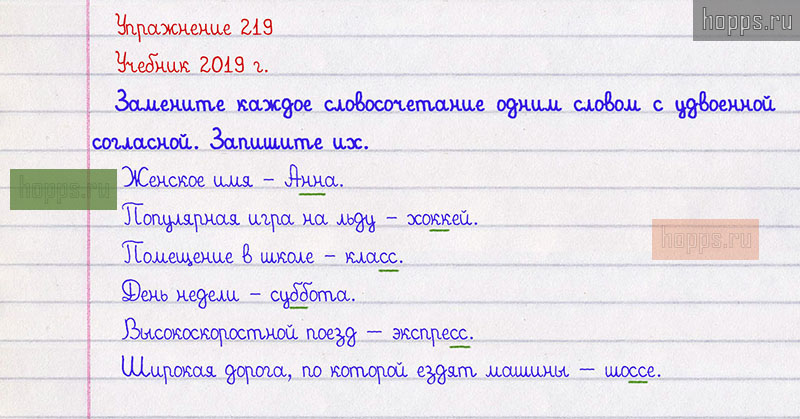 hopps.ru
Упражнение 219
Учебник 2019 г.
Замените каждое словосочетание одним словом с удвоенной
согласной. Запишите их.
hopps.ru
Женское имя – Анна.
Популярная игра на льду – хоккей.
hopps.ru
Помещение в школе – класс.
День недели – суббота.
Высокоскоростной поезд — экспресс.
Широкая дорога, по которой ездят машины – шоссе.